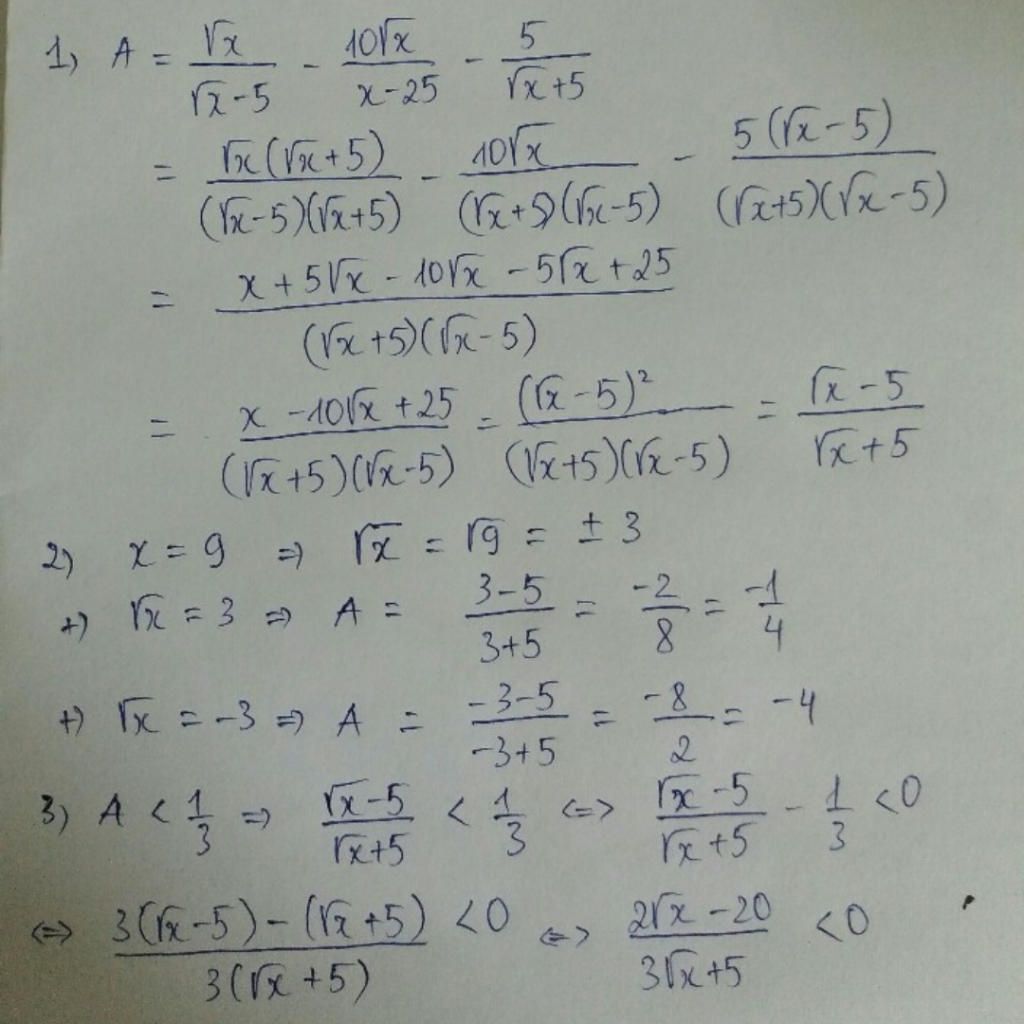 1) A = √x/(√x-5) - 10√x/(x-25) - 5/(√x+5)
= √x(√x+5)/((√x-5)(√x+5)) - 10√x/((√x+5)(√x-5)) - 5(√x-5)/((√x+5)(√x-5))
= (x+5√x-10√x-5√x+25)/((√x+5)(√x-5))
= (x-10√x+25)/((√x+5)(√x-5)) = (√x-5)²/((√x+5)(√x-5)) = (√x-5)/(√x+5)
2) x = 9 => √x = √9 = ± 3
+) √x = 3 => A = (3-5)/(3+5) = -2/8 = -1/4
+) √x = -3 => A = (-3-5)/(-3+5) = -8/2 = -4
3) A < 1/3 => (√x-5)/(√x+5) < 1/3 <=> (√x-5)/(√x+5) - 1/3 < 0
<=> (3(√x-5)-(√x+5))/(3(√x+5)) < 0 <=> (2√x-20)/(3√x+5) < 0